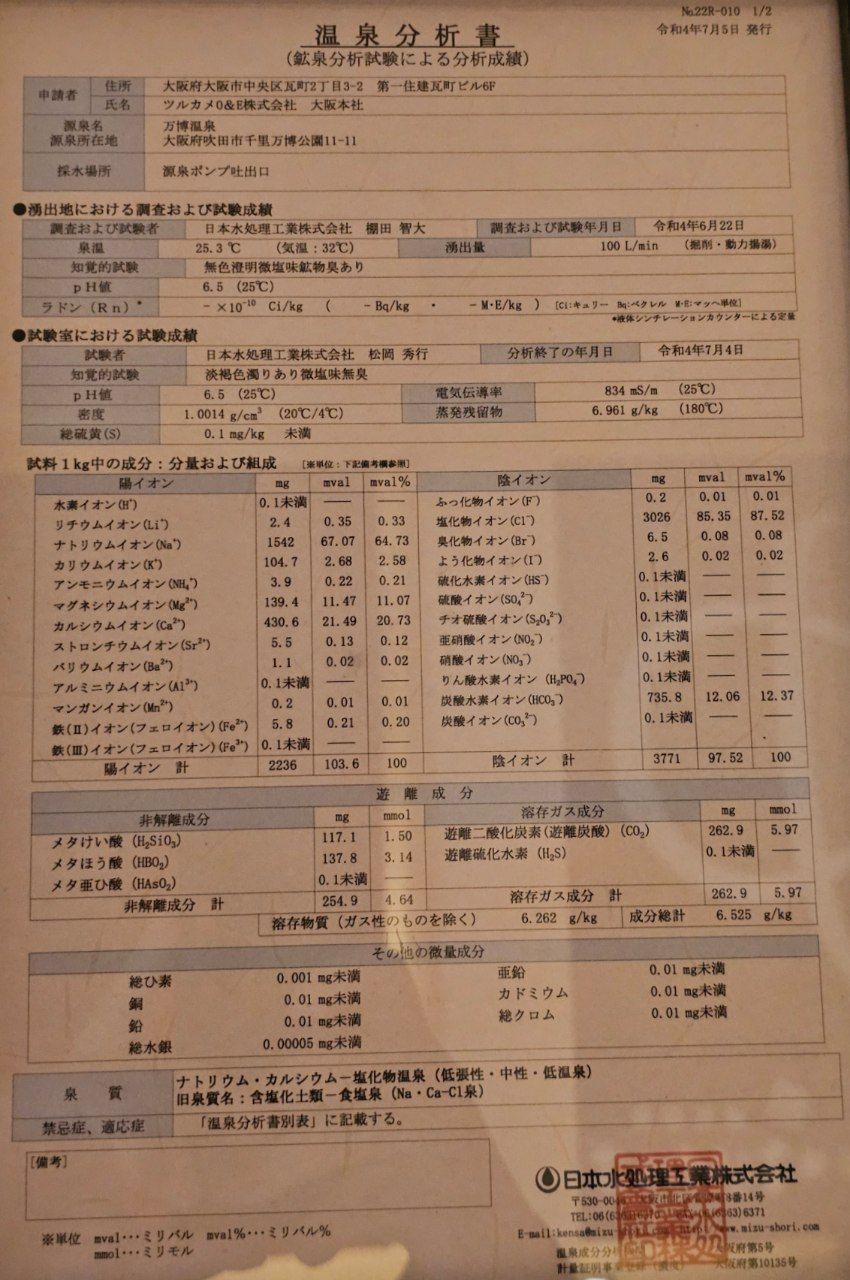 No.22R-010 1/2
令和4年7月5日 発行
温泉分析書
(鉱泉分析試験による分析成績)
申請者 住所 大阪府大阪市中央区瓦町2丁目3-2 第一住建瓦町ビル6F
氏名 ツルカメO&E株式会社 大阪本社
源泉名 万博温泉
源泉所在地 大阪府吹田市千里万博公園11-11
採水場所 源泉ポンプ吐出口
●湧出地における調査および試験成績
調査および試験者 日本水処理工業株式会社 棚田 智大 調査および試験年月日 令和4年6月22日
泉温 25.3 ℃ (気温:32℃) 湧出量 100 L/min (掘削・動力揚湯)
知覚的試験 無色澄明微塩味鉱物臭あり
pH値 6.5 (25℃)
ラドン(Rn)* -×10⁻¹⁰ Ci/kg ( -Bq/kg ・ -M・E/kg ) [Ci:キュリー Bq:ベクレル M・E:マッヘ単位]
*液体シンチレーションカウンターによる定量
●試験室における試験成績
試験者 日本水処理工業株式会社 松岡 秀行 分析終了の年月日 令和4年7月4日
知覚的試験 淡褐色濁りあり微塩味無臭
pH値 6.5 (25℃) 電気伝導率 834 mS/m (25℃)
密度 1.0014 g/cm³ (20℃/4℃) 蒸発残留物 6.961 g/kg (180℃)
総硫黄(S) 0.1 mg/kg 未満
試料1kg中の成分:分量および組成 [※単位:下記備考欄参照]
陽イオン mg mval mval% 陰イオン mg mval mval%
水素イオン(H⁺) 0.1未満 — — ふっ化物イオン(F⁻) 0.2 0.01 0.01
リチウムイオン(Li⁺) 2.4 0.35 0.33 塩化物イオン(Cl⁻) 3026 85.35 87.52
ナトリウムイオン(Na⁺) 1542 67.07 64.73 臭化物イオン(Br⁻) 6.5 0.08 0.08
カリウムイオン(K⁺) 104.7 2.68 2.58 よう化物イオン(I⁻) 2.6 0.02 0.02
アンモニウムイオン(NH₄⁺) 3.9 0.22 0.21 硫化水素イオン(HS⁻) 0.1未満 — —
マグネシウムイオン(Mg²⁺) 139.4 11.47 11.07 硫酸イオン(SO₄²⁻) 0.1未満 — —
カルシウムイオン(Ca²⁺) 430.6 21.49 20.73 チオ硫酸イオン(S₂O₃²⁻) 0.1未満 — —
ストロンチウムイオン(Sr²⁺) 5.5 0.13 0.12 亜硝酸イオン(NO₂⁻) 0.1未満 — —
バリウムイオン(Ba²⁺) 1.1 0.02 0.02 硝酸イオン(NO₃⁻) 0.1未満 — —
アルミニウムイオン(Al³⁺) 0.1未満 — — りん酸水素イオン (H₂PO₄⁻) 0.1未満 — —
マンガンイオン(Mn²⁺) 0.2 0.01 0.01 炭酸水素イオン(HCO₃⁻) 735.8 12.06 12.37
鉄(Ⅱ)イオン(フェロイオン)(Fe²⁺) 5.8 0.21 0.20 炭酸イオン(CO₃²⁻) 0.1未満 — —
鉄(Ⅲ)イオン(フェロイオン)(Fe³⁺) 0.1未満 — —
陽イオン 計 2236 103.6 100 陰イオン 計 3771 97.52 100
遊離成分
非解離成分 mg mmol 溶存ガス成分 mg mmol
メタけい酸 (H₂SiO₃) 117.1 1.50 遊離二酸化炭素(遊離炭酸) (CO₂) 262.9 5.97
メタほう酸 (HBO₂) 137.8 3.14 遊離硫化水素 (H₂S) 0.1未満 —
メタ亜ひ酸 (HAsO₂) 0.1未満 —
非解離成分 計 254.9 4.64 溶存ガス成分 計 262.9 5.97
溶存物質(ガス性のものを除く) 6.262 g/kg 成分総計 6.525 g/kg
その他の微量成分
総ひ素 0.001 mg未満 亜鉛 0.01 mg未満
銅 0.01 mg未満 カドミウム 0.01 mg未満
鉛 0.01 mg未満 総クロム 0.01 mg未満
総水銀 0.00005 mg未満
泉質 ナトリウム・カルシウム-塩化物温泉(低張性・中性・低温泉)
旧泉質名:含塩化土類-食塩泉(Na・Ca-Cl泉)
禁忌症、適応症 「温泉分析書別表」に記載する。
[備考]
日本水処理工業株式会社
大阪市北区 8番14号
TEL:06(6363)6370 FAX(6363)6371
E-mail:kensa@mizu-shori.com www.mizu-shori.com
温泉成分分析 大阪府第5号
計量証明事業 大阪府第10135号
※単位 mval・・・ミリバル mval%・・・ミリバル%
mmol・・・ミリモル